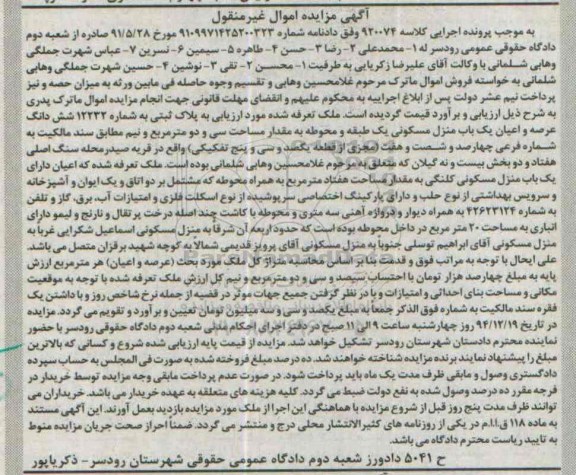 آگهی مزایده اموال غیرمنقول
به موجب پرونده اجرایی کلاسه ۹۲۰۰۷۴ وفق دادنامه شماره ۹۱۰۹۹۷۱۴۲۵۲۰۰۳۲۳ مورخ ۹۱/۵/۲۸ صادره از شعبه دوم
دادگاه حقوقی عمومی رودسر له ۱- محمدعلی ۲- رضا ۳- حسن ۴- طاهره ۵- سیمین ۶- نسرین ۷- عباس شهرت جملگی
وهابی شلمانی با وکالت آقای علیرضا زکریایی به طرفیت ۱- محسن ۲- تقی ۳- نوشین ۴- حسین شهرت جملگی وهابی
شلمانی به خواسته فروش اموال ماترک مرحوم غلامحسین وهابی و تقسیم وجوه حاصله فی مابین ورثه به میزان حصه و نیز
پرداخت نیم عشر دولت پس از ابلاغ اجراییه به محکوم علیهم و انقضای مهلت قانونی جهت انجام مزایده اموال ماترک پدری
به شرح ذیل ارزیابی و برآورد قیمت گردیده است. ملک تعرفه شده مورد ارزیابی به پلاک ثبتی به شماره ۱۲۲۳۲ شش دانگ
عرصه و اعیان یک باب منزل مسکونی یک طبقه و محوطه به مقدار مساحت سی و دو مترمربع و نیم مطابق سند مالکیت به
شماره فرعی چهارصد و شصت و هفت مجزی از قطعه یکصد و سی و پنج تفکیکی) واقع در قریه صیدرمحله سنگ اصلی
هفتاد و دو بخش بیست و نه گیلان که متعلق به مرحوم غلامحسین وهابی شلمانی بوده است. ملک تعرفه شده که اعیان دارای
یک باب منزل مسکونی کلنگی به مقدار مساحت هفتاد مترمربع به همراه محوطه که مشتمل بر دو اتاق و یک ایوان و آشپزخانه
و سرویس بهداشتی از نوع حلب و دارای پارکینگ اختصاصی سرپوشیده از نوع اسکلت فلزی و امتیازات آب، برق، گاز و تلفن
به شماره ۴۲۶۲۳۱۲۴ به همراه دیوار و دروازه آهنی سه متری و محوطه با کاشت چند اصله درخت پرتقال و نارنج و لیمو دارای
انباری به مساحت ۲۰ متر مربع در داخل محوطه بوده است که حدود اربعه آن شرقاً به منزل مسکونی اسماعیل شکرایی غرباً به
منزل مسکونی آقای ابراهیم توسلی جنوباً به منزل مسکونی آقای پرویز قدیمی شمالاً به کوچه شهید برقزان متصل می باشد.
علی ایحال با توجه به مراتب فوق و قدمت بنای اعیان محاسبه متراژ کل ملک مورد بحث (عرصه و اعیان) هر مترمربع ارزش
پایه به مبلغ چهارصد هزار تومان با احتساب سیصد و سی و دو مترمربع و نیم کل ارزش ملک تعرفه شده با توجه به موقعیت
مکانی و مساحت بنای احداثی و امتیازات و با در نظر گرفتن جمیع جهات موثر در قضیه از جمله نرخ شاخص روز و با داشتن یک
فقره سند مالکیت به شماره فوق الذکر جمعاً به مبلغ یکصد و سی و سه میلیون تومان تعیین و برآورد و تقویم می گردد. مزایده
در تاریخ ۹۴/۱۲/۱۹ روز چهارشنبه ساعت ۹ الی ۱۱ صبح در دفتر اجرای احکام مدنی شعبه دوم دادگاه حقوقی رودسر با حضور
نماینده محترم دادستان شهرستان رودسر تشکیل خواهد شد. مزایده از قیمت پایه ارزیابی شده شروع و کسانی که بالاترین
مبلغ را پیشنهاد نمایند برنده مزایده شناخته خواهند شد. ده درصد مبلغ فروخته شده به صورت فی المجلس به حساب سپرده
دادگستری وصول و مابقی ظرف مدت یک ماه باید پرداخت شود. در صورت عدم پرداخت مابقی وجه مزایده توسط خریدار در
فرجه مقرر ده درصد وصول شده به نفع دولت ضبط می گردد. کلیه هزینه های متعلقه به عهده خریدار می باشد. خریداران می
توانند ظرف مدت پنج روز قبل از شروع مزایده با هماهنگی این اجرا از ملک مورد مزایده بازدید بعمل آورند. این آگهی مستند
به ماده ۱۱۸ ق.ا.ا.م در یکی از روزنامه های کثیرالانتشار محلی درج و منتشر می گردد. ضمناً احراز صحت جریان مزایده منوط
به تایید ریاست محترم دادگاه می باشد.
ح ۵۰۴۱ دادورز شعبه دوم دادگاه عمومی حقوقی شهرستان رودسر- ذکریاپور